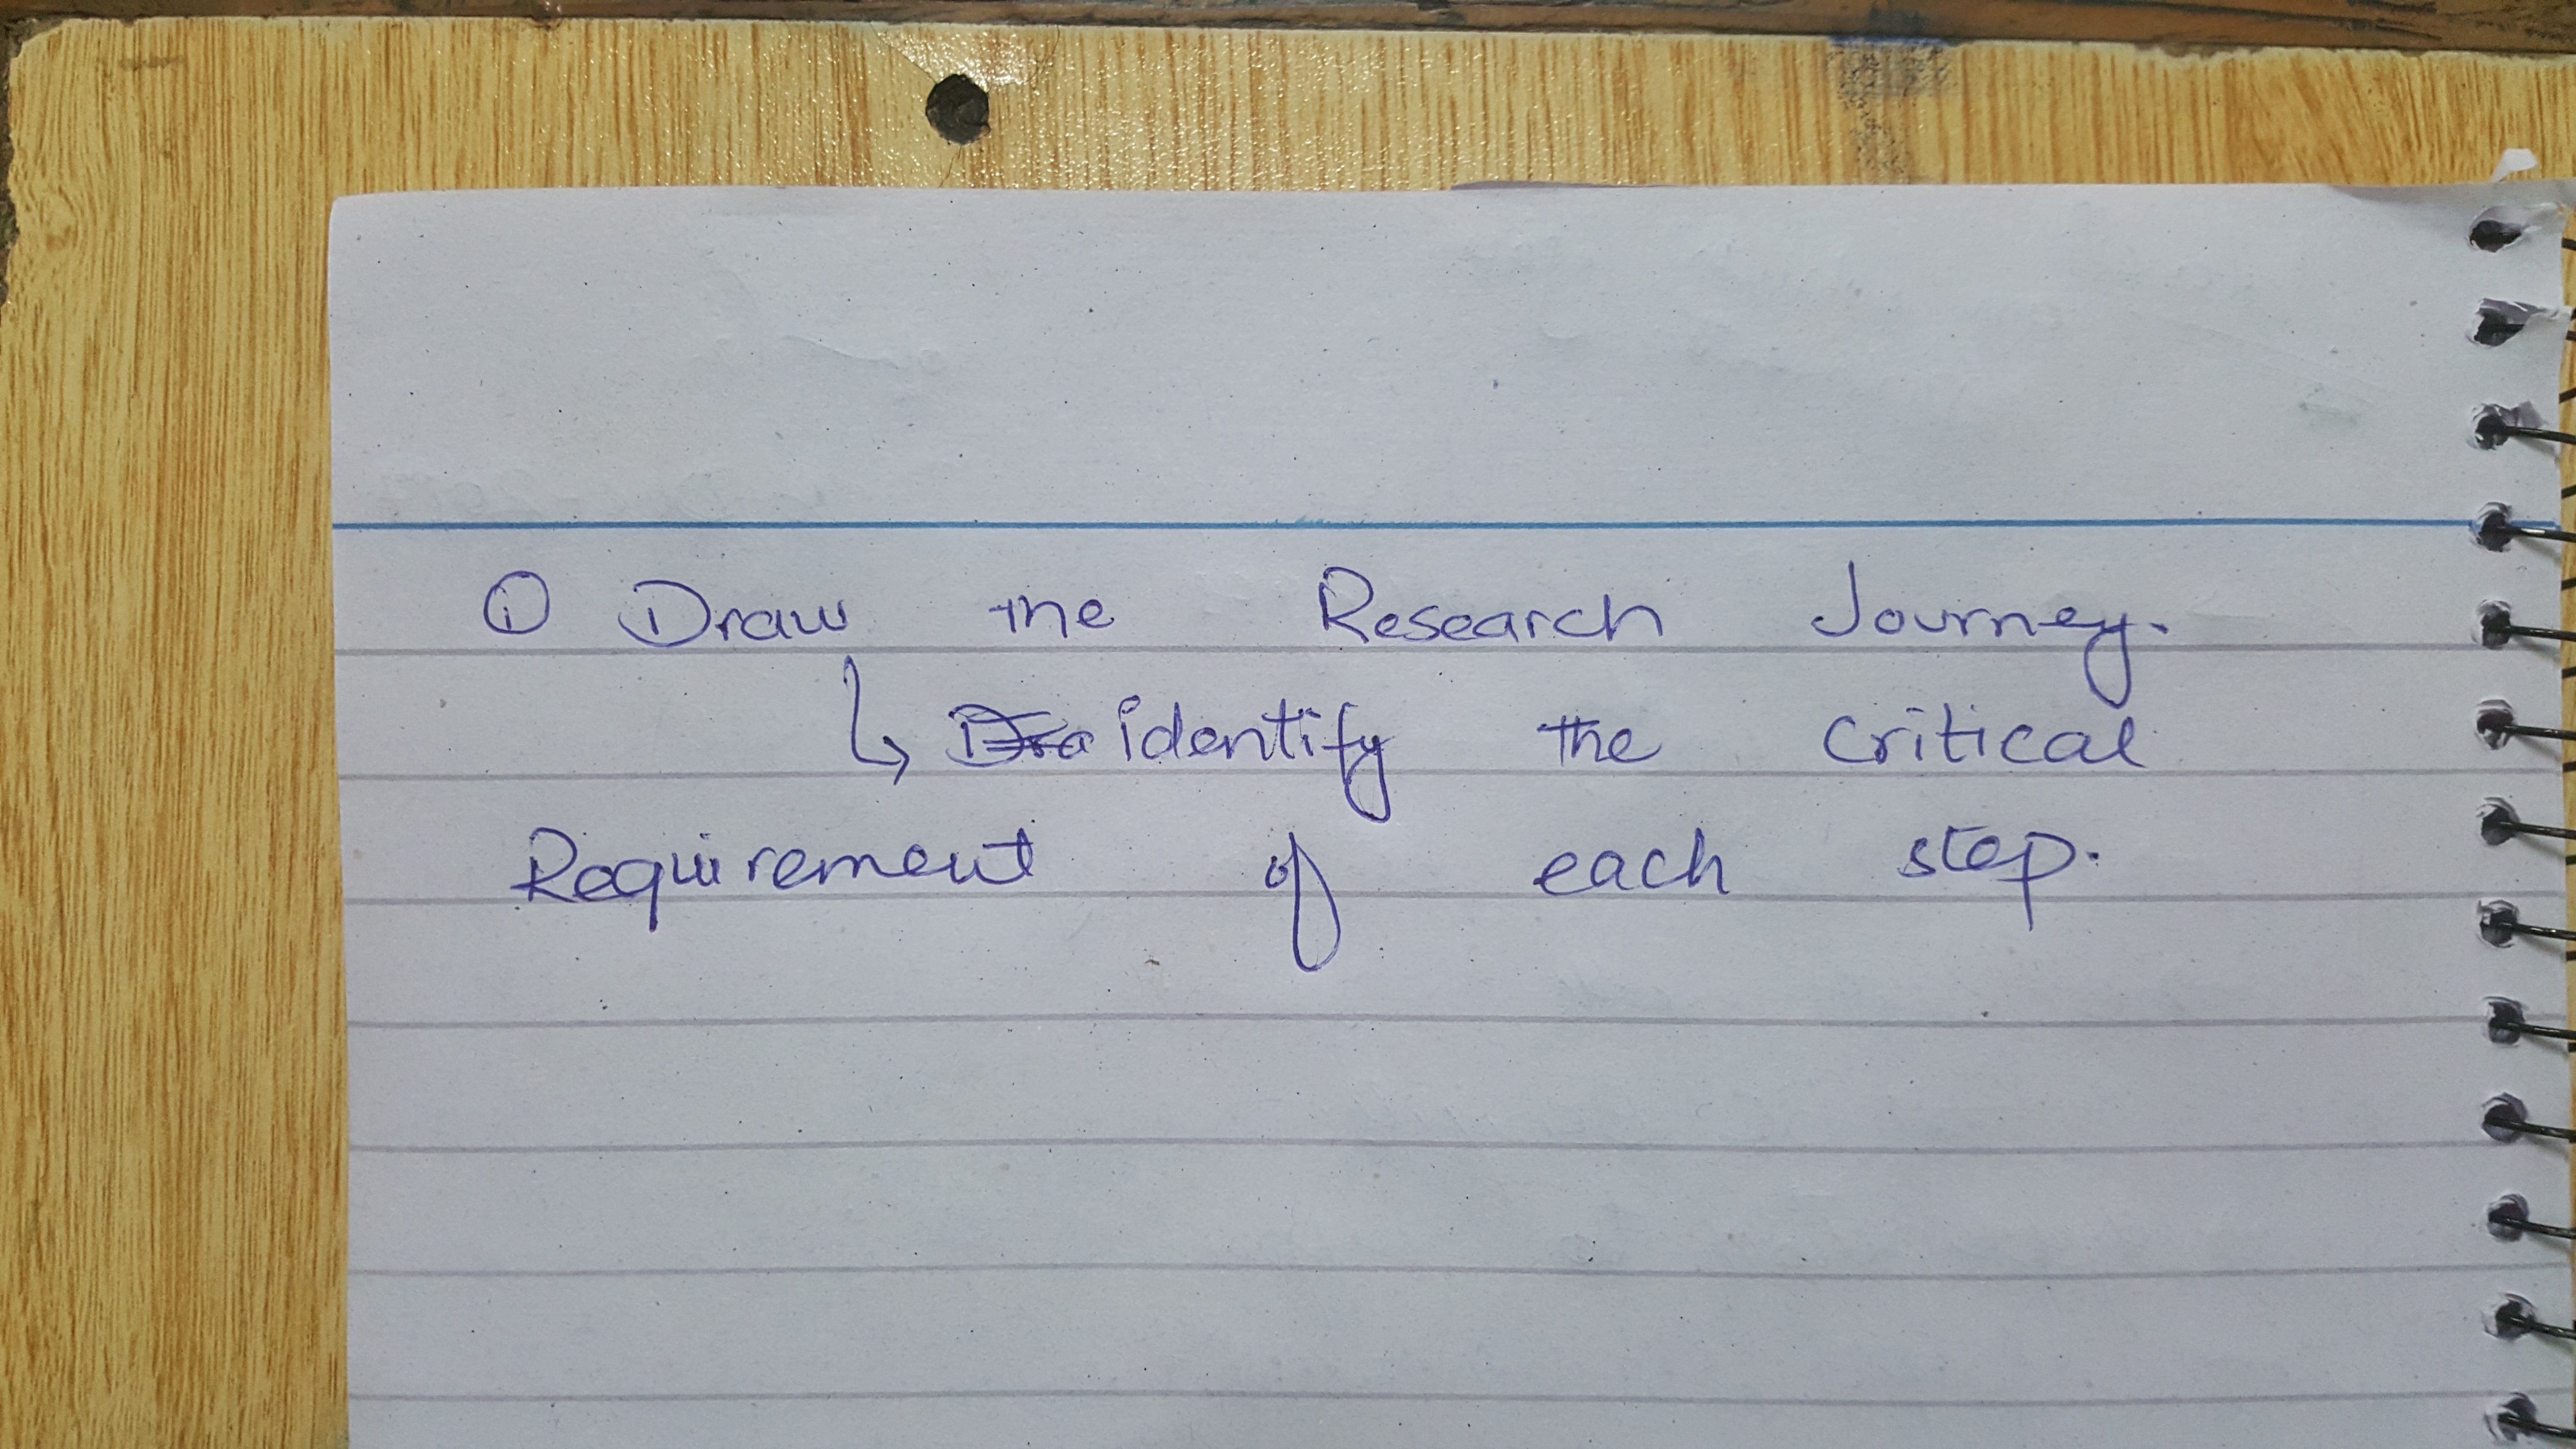 ① Draw the Research Journey.
↳ identify the critical
Requirement of each step.